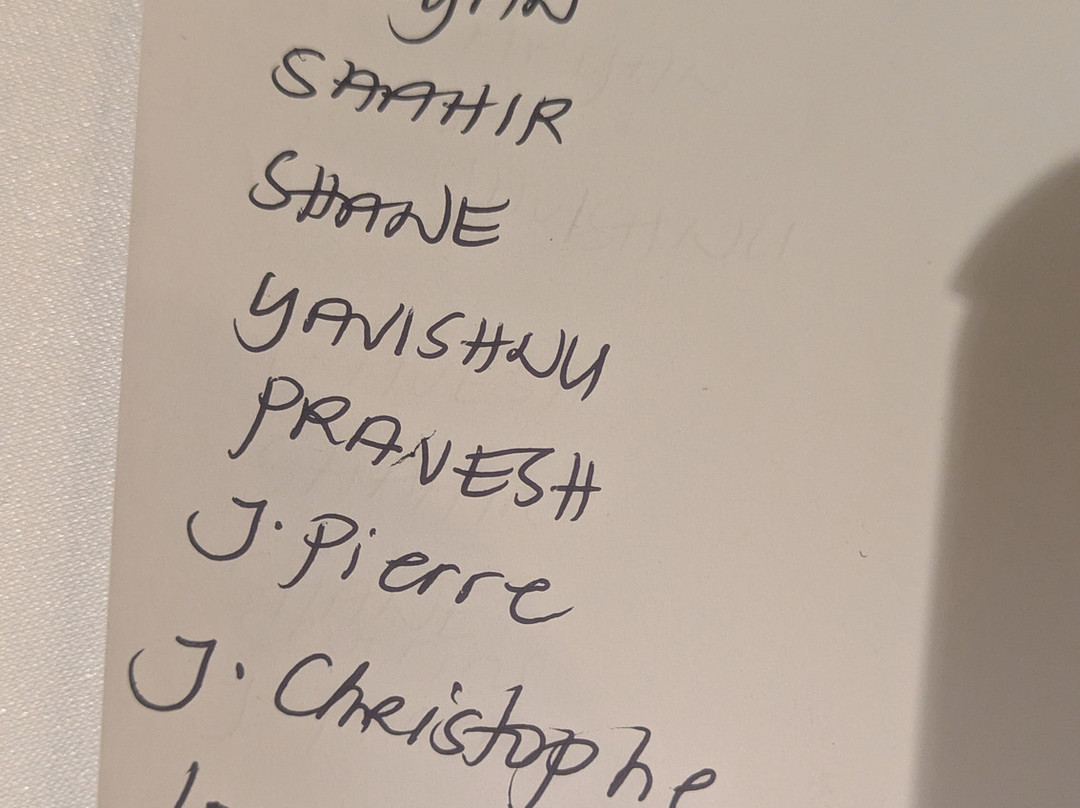 SAAHIR
SHANE
YAVISHNU
PRANESH
J. Pierre
J. Christophe